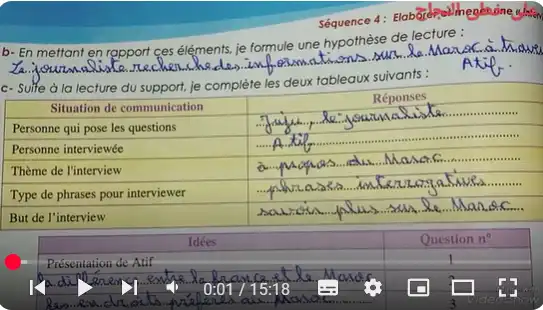 Séquence 4 : Elaborer et mener une
على خطى النجاح
b- En mettant en rapport ces éléments, je formule une hypothèse de lecture :
Le journaliste recherche des informations sur le Maroc à travers
Atif.
c- Suite à la lecture du support, je complète les deux tableaux suivants :
Situation de communication Réponses
Personne qui pose les questions Juju, le journaliste
Personne interviewée Atif
Thème de l'interview à propos du Maroc
Type de phrases pour interviewer phrases interrogatives
But de l'interview savoir plus sur le Maroc
Idées Question n°
Présentation de Atif 1
la différence entre la France et le Maroc 2
les endroits préférés au Maroc 3
0:01 / 15:18